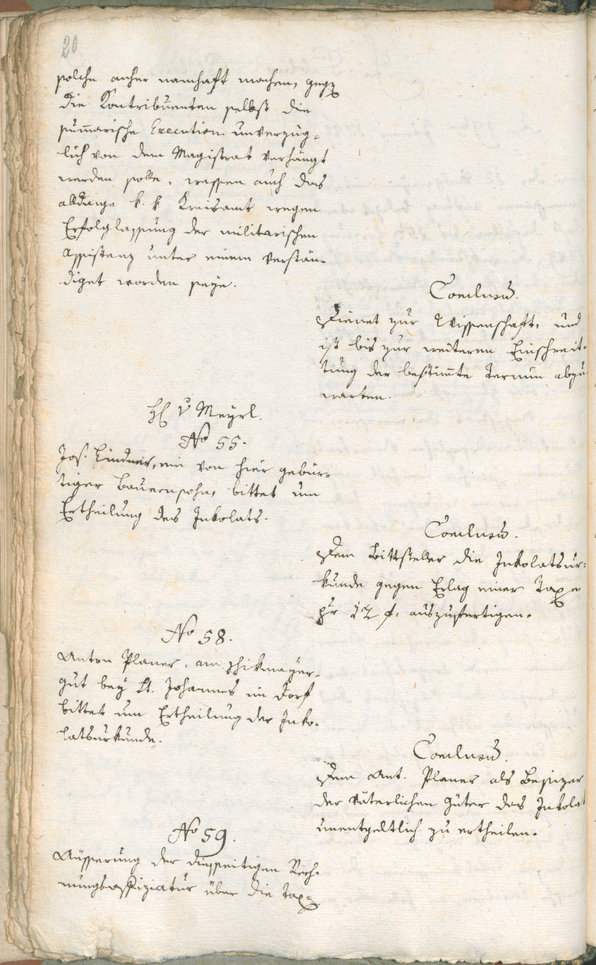 20
solche anher namhaft machen, gegen
die Kontribuenten selbst die
sum̄arische Execution unverzüg-
lich von dem Magistrat verhängt
werden solle, wessen auch das
alldaige k. k. Kreisamt wegen
Erfolglassung der militarischen
Assistenz unter einem verstän-
diget worden seye.
Conclusum.
Dienet zur Wissenschaft, und
ist bis zur weiteren Einschreit-
tung der bestimmte Termin abzu
warten.
H v Meyrl.
No 55.
Jos. Lindner, ein von hier gebür-
tiger Bauernsohn, bittet um
Ertheilung des Inkolats.
Conclusum.
Dem Bittsteller die Inkolatsur-
kunde gegen Erlag einer Taxe
pr 12 f. auszufertigen.
No 58.
Anton Planer, am
gut bey St. Johannes im Dorf
bittet um Ertheilung der Inko-
latsurkunde.
Conclusum.
Dem Ant. Planer als Besizer
der väterlichen Güter das Inkolat
unentgeltlich zu ertheilen.
No 59.
Äusserung der diesseitigen Rech-
nungsoffiziatur über die Taxe